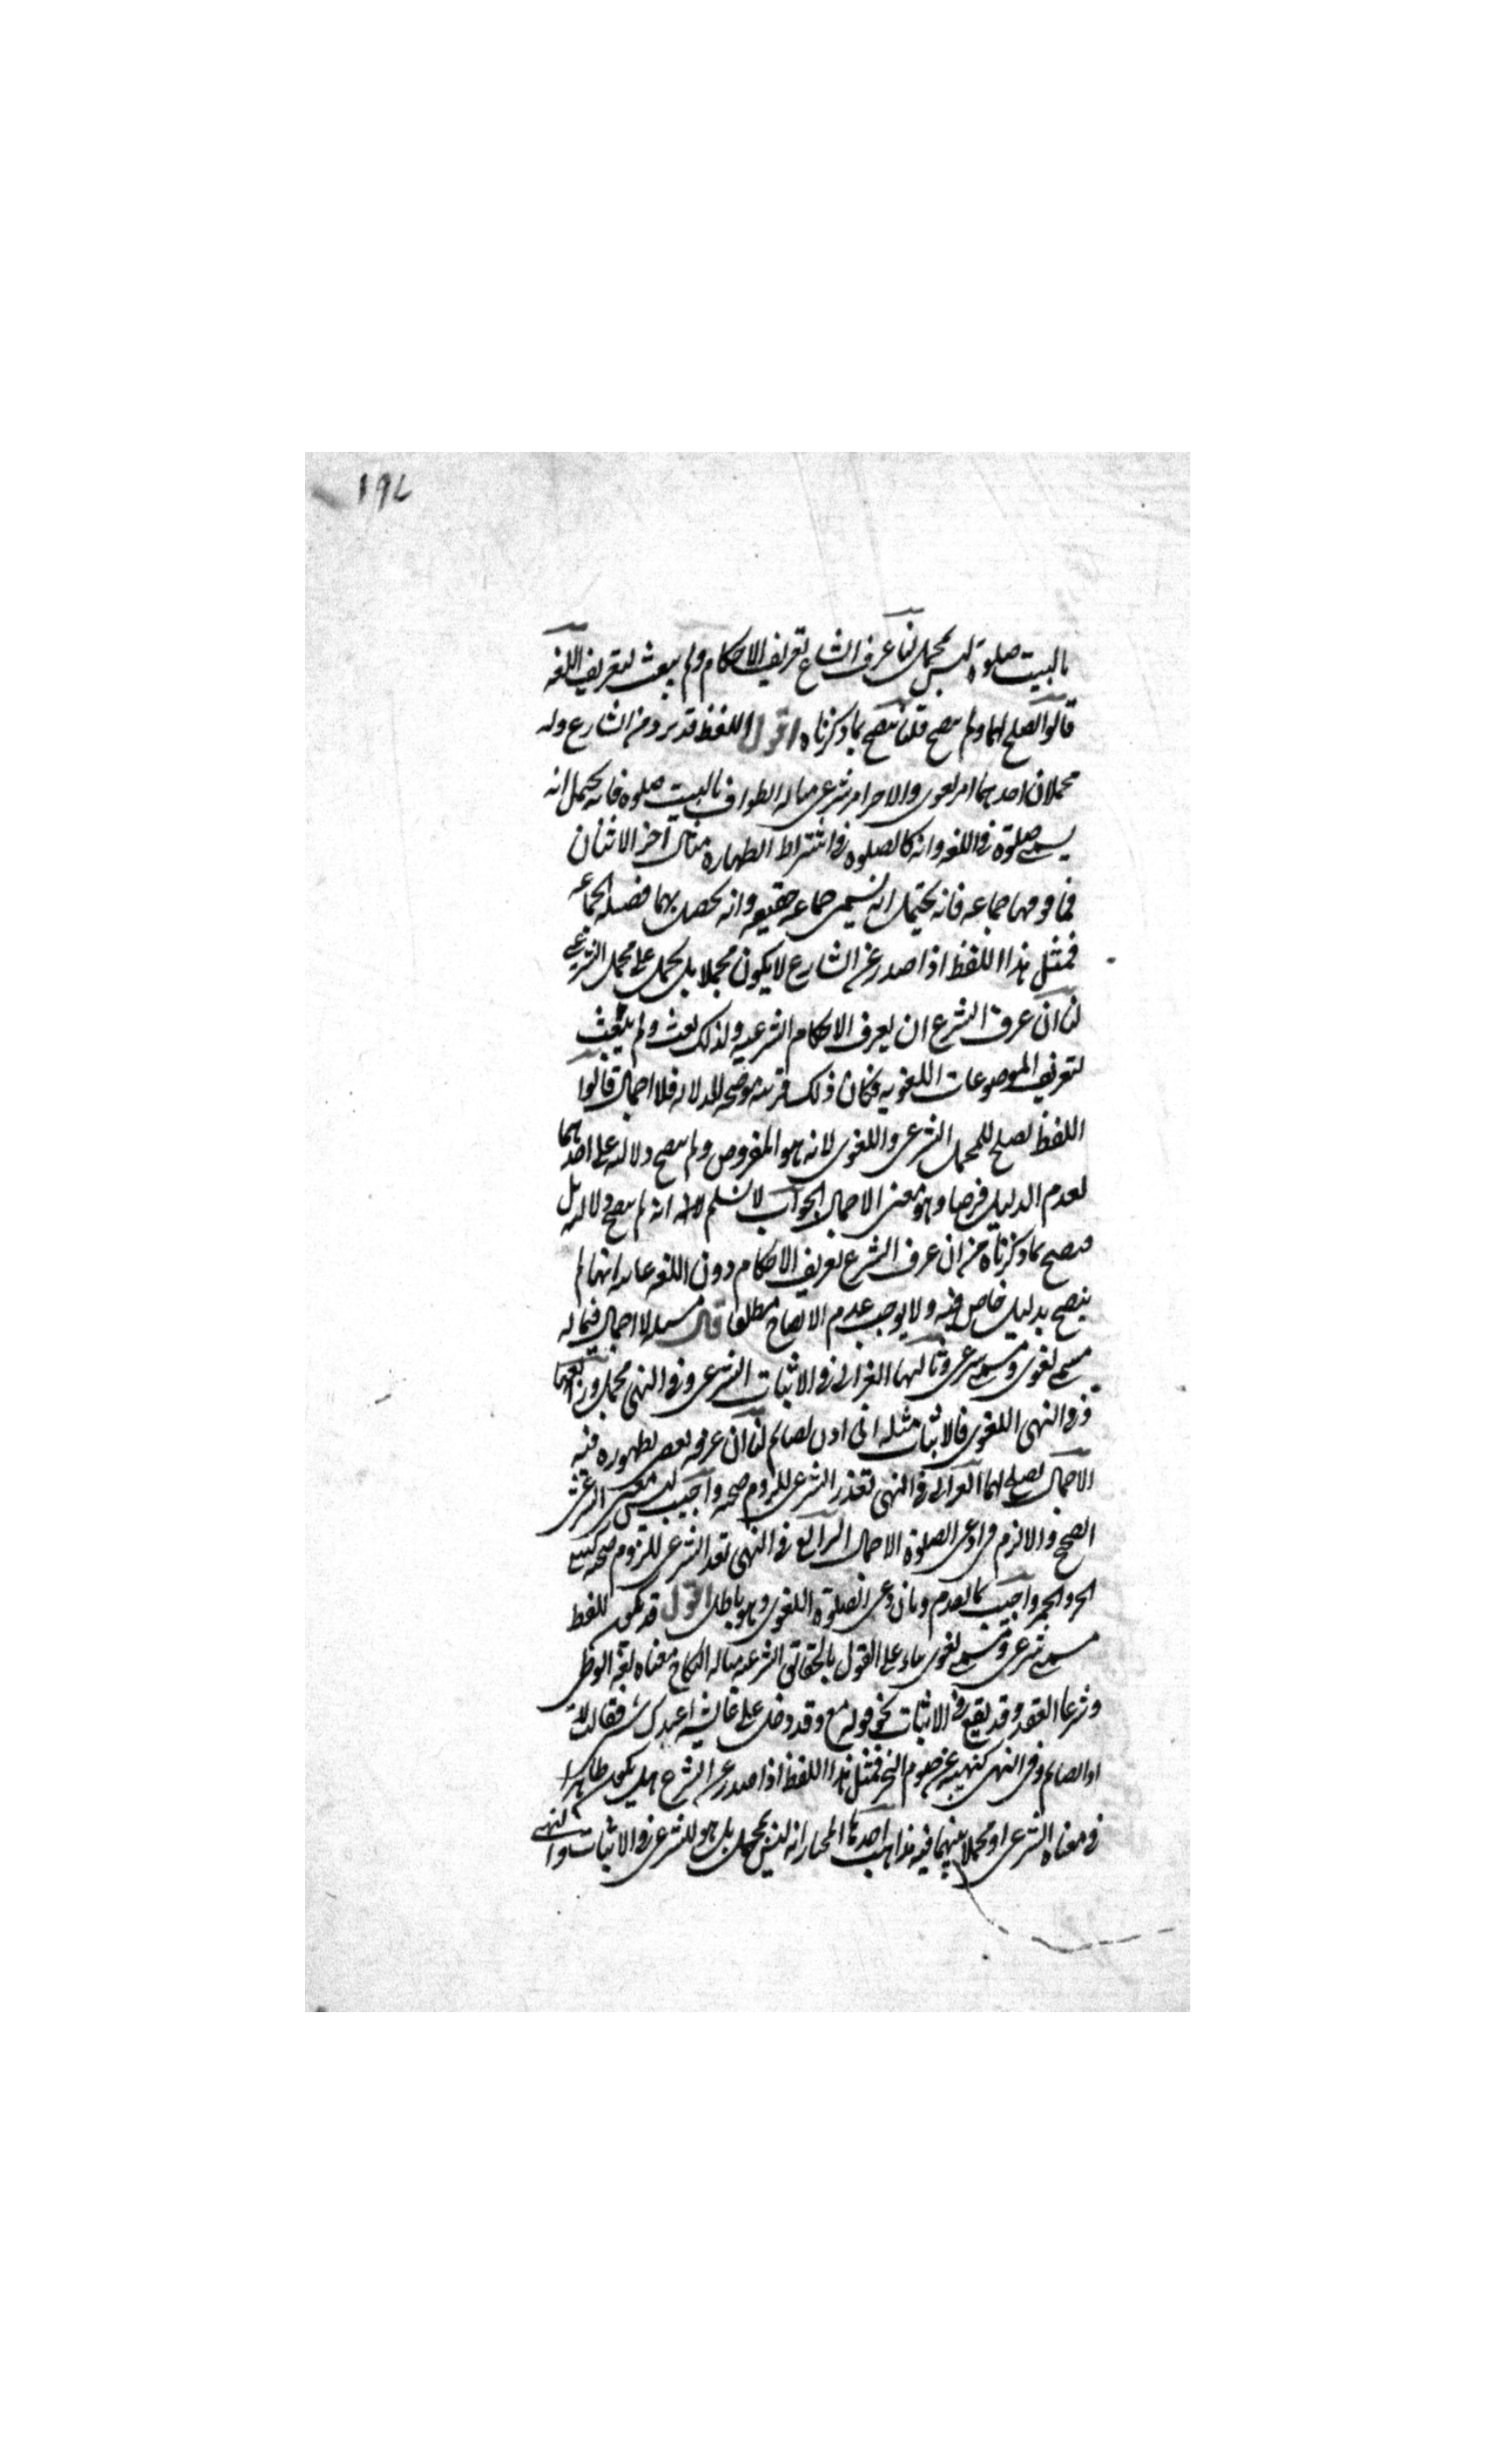 ١٩٧
بالبيت صلوة ليس بمجمل لنا عرف الشارع تعريف الاحكام ولم يبعث لتعريف اللغة
قالوا يصلح لهما ولم يتضح قلنا متضح بما ذكرناه اقول اللفظ قد يرد من الشارع وله
محملان احدهما امر لغوى والاخر امر شرعى مثاله الطواف بالبيت صلوة فانه يحتمل انه
يسمى صلوة فى اللغة وانه كالصلوة فى اشتراط الطهارة مثال آخر الاثنان
فما فوقهما جماعة فانه يحتمل انه يسمى جماعة حقيقة وانه يحصل بهما فضيلة الجماعة
فمثل هذا اللفظ اذا صدر عن الشارع لا يكون مجملا بل يحمل على المحمل الشرعى
لنا ان عرف الشرع ان يعرف الاحكام الشرعية ولذلك بعث ولم يبعث
لتعريف الموضوعات اللغوية فكان ذلك قرينة موضحة للدلالة فلا اجمال قالوا
اللفظ يصلح للمحمل الشرعى واللغوى لانه هو المفروض ولم يتضح دلالته على احدهما
لعدم الدليل فرضا وهو معنى الاجمال الجواب لا نسلم انه لم يتضح دلالته بل
متضح بما ذكرناه من ان عرف الشرع تعريف الاحكام دون اللغة غايته انها لم
يتضح بدليل خاص فيه ولا يوجب عدم الاتضاح مطلقا قال مسئلة لا اجمال فيما له
مسمى لغوى ومسمى شرعى وثالثها الغزالى فى الاثبات الشرعى وفى النهى مجمل ورابعها
فى النهى اللغوى فالاثبات مثله انى اذن لصائم لنا ان عرفه يقضى بظهوره فيه
الاجمال يصلح لهما الغزالى فى النهى تعذر الشرعى للزوم صحته واجيب ليس معنى الشرعى
الصحيح والا لزم فى دعى الصلوة الاجمال الرابع فى النهى تعذر الشرعى للزوم صحته كبيع
الحر والخمر واجيب بما تقدم وبان دعى الصلوة اللغوى وهو باطل اقول قد يكون للفظ
مسمى شرعى ومسمى لغوى بناء على القول بالحقائق الشرعية مثاله النكاح معناه لغة الوطئ
وشرعا العقد وقد يقع فى الاثبات نحو قوله ع وقد دخل على عائشة اعندك شئ فقالت لا
اذا لصائم وفى النهى كنهيه عن صوم النحر فمثل هذا اللفظ اذا صدر عن الشرع هل يكون ظاهرا
فى معناه الشرعى او مجملا بينهما فيه مذاهب احدها المختار انه ليس بمجمل بل هو للشرعى فى الاثبات والنهى